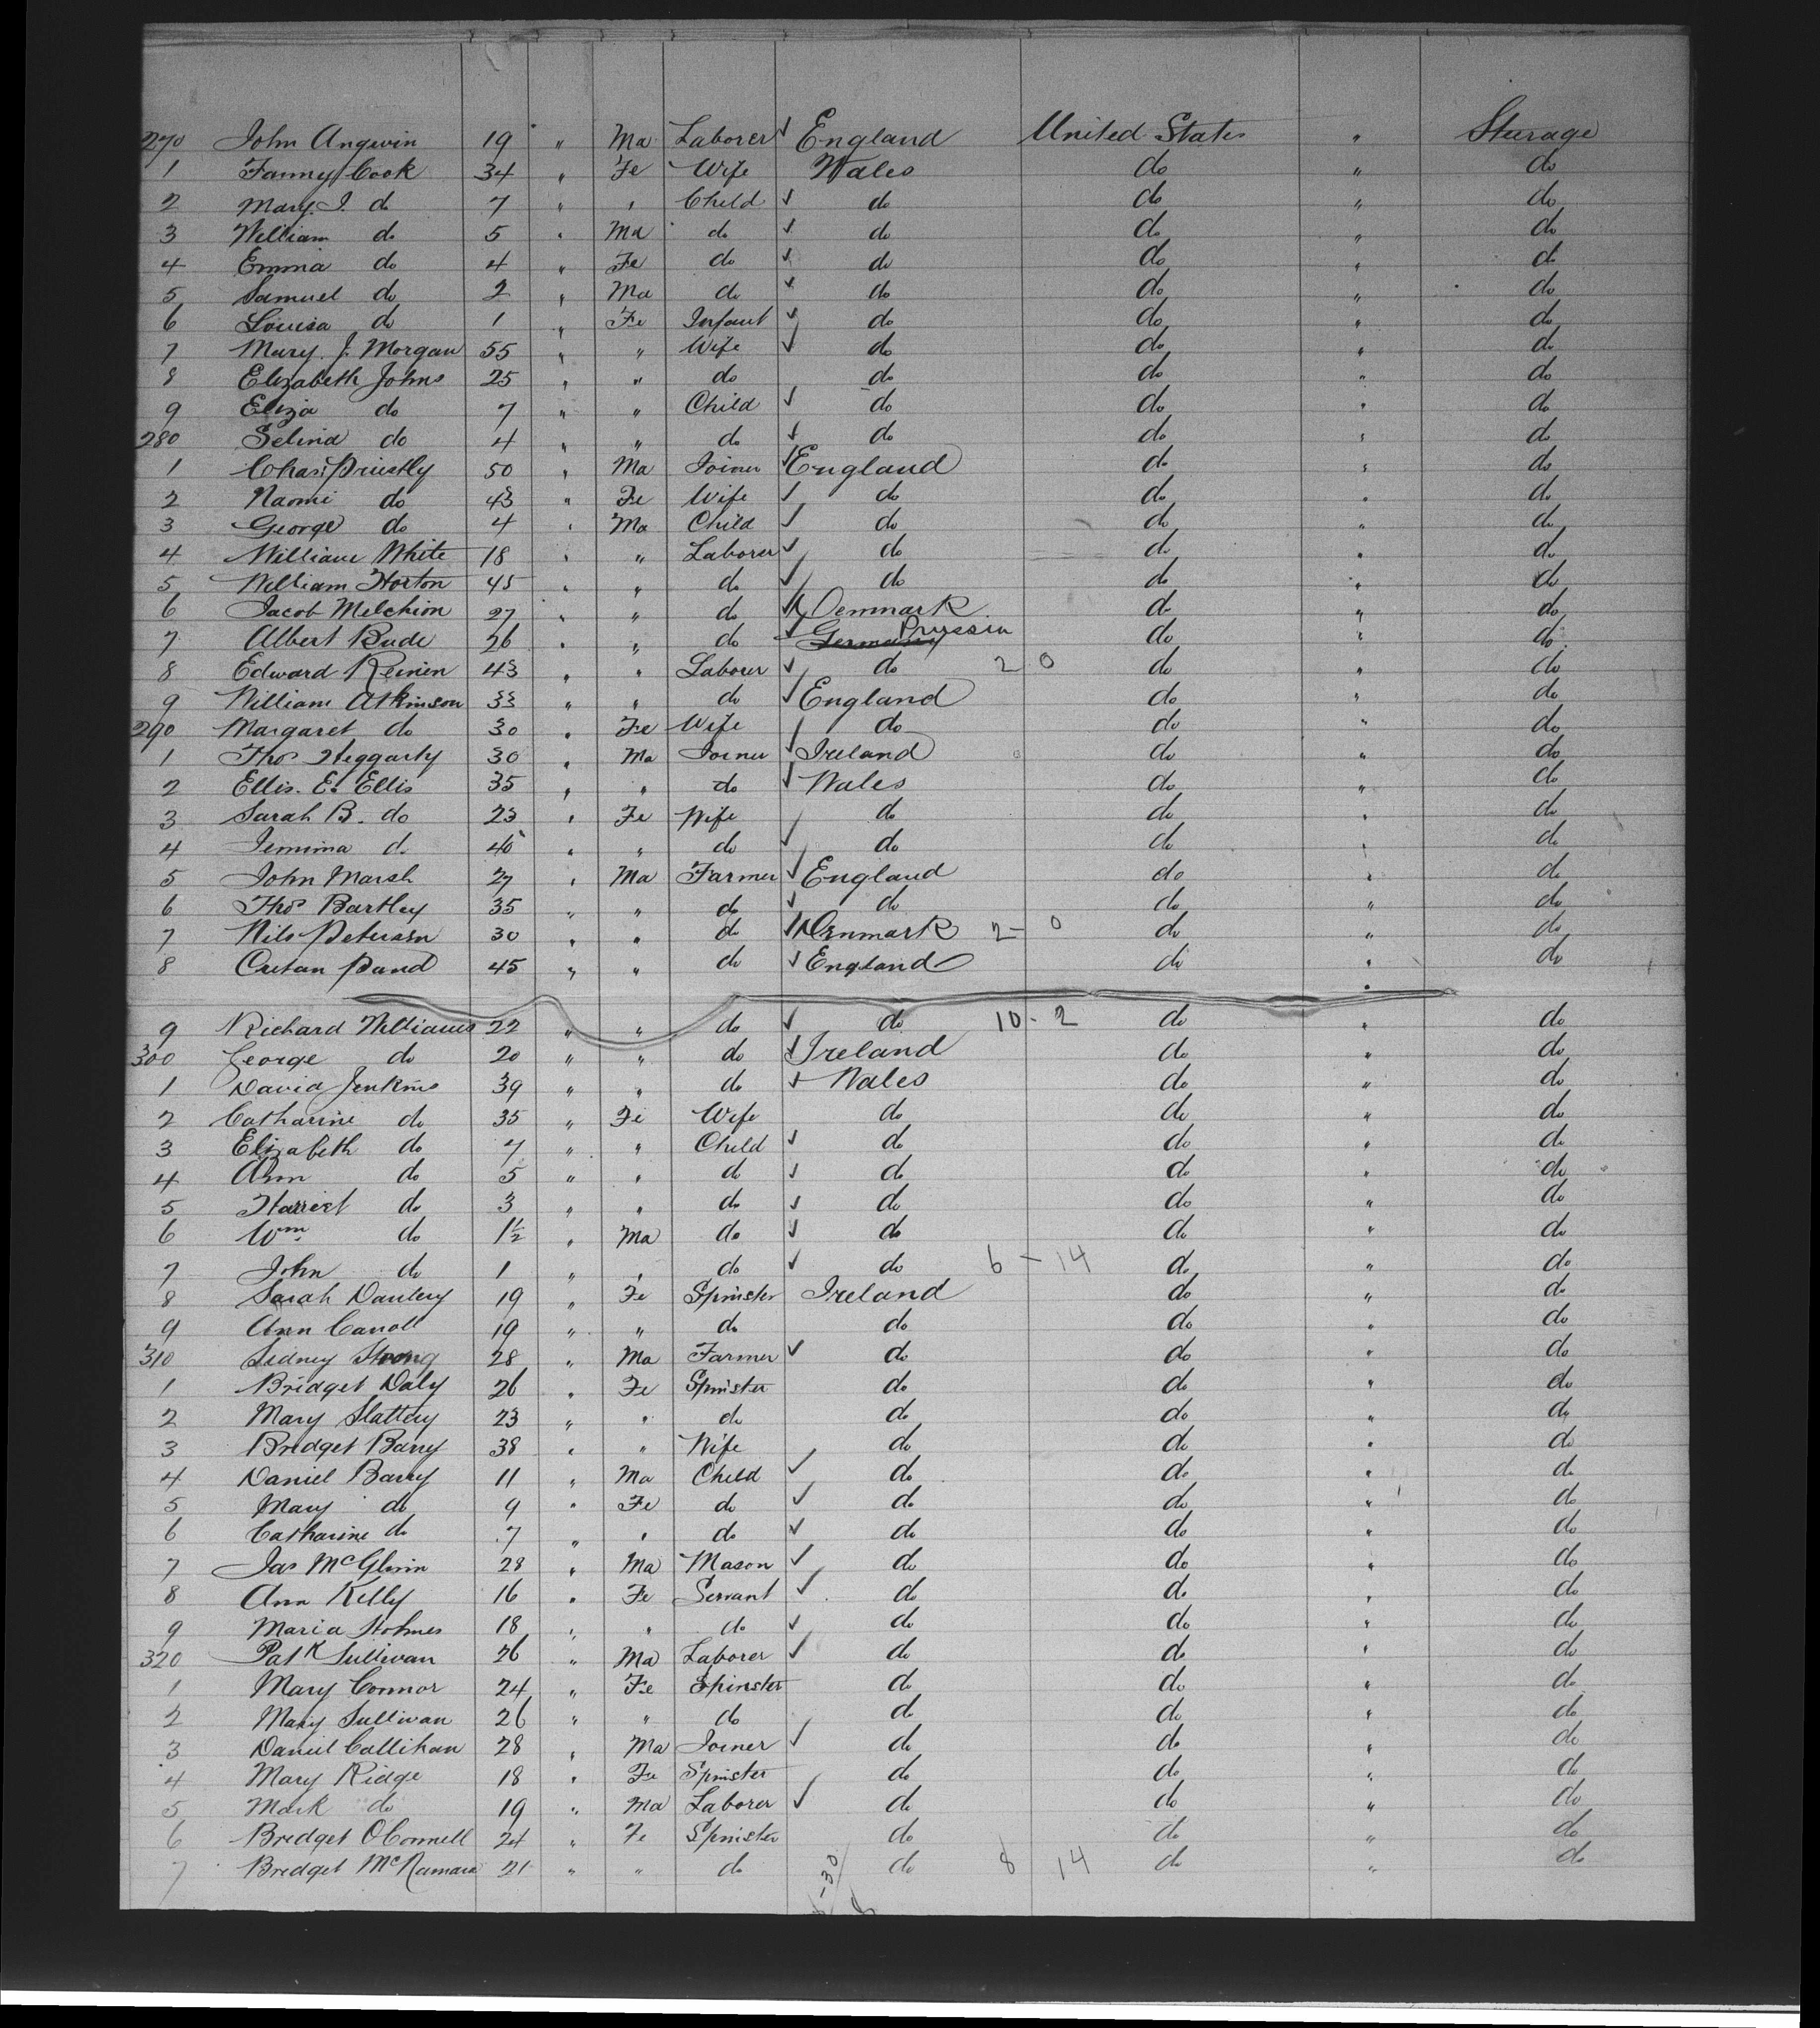 270 John Angwin 19 " Ma Laborer ✓ England United States " Sturage
1 Fanny Cook 34 " Fe Wife Wales do " do
2 Mary J. do 7 " " Child ✓ do do " do
3 William do 5 " Ma do ✓ do do " do
4 Emma do 4 " Fe do ✓ do do " do
5 Samuel do 2 " Ma do ✓ do do " do
6 Louisa do 1 " Fe Infant ✓ do do " do
7 Mary J. Morgan 55 " " Wife ✓ do do " do
8 Elizabeth Johns 25 " " do do do " do
9 Eliza do 7 " " Child ✓ do do " do
280 Selina do 4 " " do ✓ do do " do
1 Chas. Priestly 50 " Ma Joiner ✓ England do " do
2 Naomi do 43 " Fe Wife ✓ do do " do
3 George do 4 " Ma Child ✓ do do " do
4 William White 18 " " Laborer ✓ do do " do
5 William Horton 45 " " do ✓ do do " do
6 Jacob Melchion 27 " " do ✓ Denmark do " do
7 Albert Bude 26 " " do ✓ Germany Prussia do " do
8 Edward 43 " " Laborer ✓ do 2 0 do " do
9 William Atkinson 33 " " do ✓ England do " do
290 Margaret do 30 " Fe Wife do do " do
1 Thos Heggarty 30 " Ma Joiner ✓ Ireland do " do
2 Ellis. E. Ellis 35 " " do ✓ Wales do " do
3 Sarah B. do 23 " Fe Wife do do " do
4 Jemima do 40 " " do ✓ do do " do
5 John Marsh 27 " Ma Farmer ✓ England do " do
6 Thos Bartley 35 " " do ✓ do do " do
7 Nils Petersen 30 " " do ✓ Denmark 2 - 0 do " do
8 45 " " do ✓ England do " do
9 Richard Williams 22 " " do ✓ do 10 - 2 do " do
300 George do 20 " " do ✓ Ireland do " do
1 David Jenkins 39 " " do ✓ Wales do " do
2 Catharine do 35 " Fe Wife do do " do
3 Elizabeth do 7 " " Child ✓ do do " do
4 Ann do 5 " " do ✓ do do " do
5 Harriet do 3 " " do ✓ do do " do
6 Wm do 1½ " Ma do ✓ do do " do
7 John do 1 " " do ✓ do 6 - 14 do " do
8 Sarah 19 " Fe Spinster Ireland do " do
9 Ann Caroll 19 " " do do do " do
310 Sidney Strong 28 " Ma Farmer ✓ do do " do
1 Bridget Daly 26 " Fe Spinster do do " do
2 Mary Slattery 23 " " do do do " do
3 Bridget Barry 38 " " Wife do do " do
4 Daniel Barry 11 " Ma Child ✓ do do " do
5 Mary do 9 " Fe do ✓ do do " do
6 Catharine do 7 " " do ✓ do do " do
7 Jas McGlinn 28 " Ma Mason ✓ do do " do
8 Ann Kelly 16 " Fe Servant ✓ do do " do
9 Maria Holmes 18 " " do ✓ do do " do
320 Patk Sullivan 26 " Ma Laborer ✓ do do " do
1 Mary Connor 24 " Fe Spinster do do " do
2 Mary Sullivan 26 " " do do do " do
3 Daniel Callihan 28 " Ma Joiner ✓ do do " do
4 Mary Ridge 18 " Fe Spinster do do " do
5 Mark do 19 " Ma Laborer ✓ do do " do
6 Bridget OConnell 24 " Fe Spinster do do " do
7 Bridget McNamara 21 " " do do 8 14 do " do